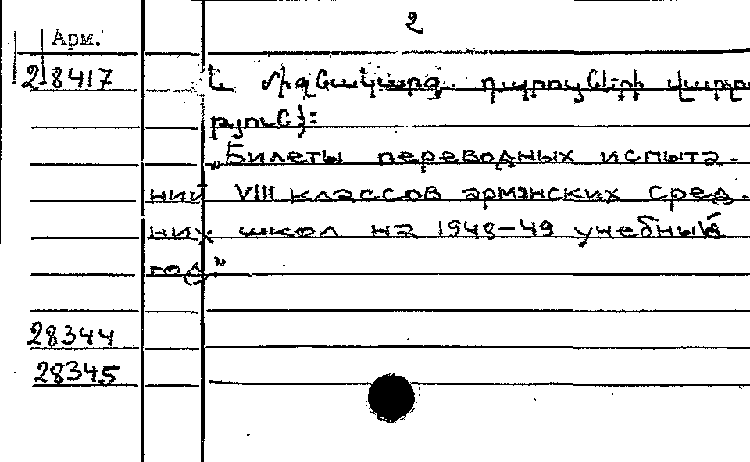 2
Арм.
28417 և միջնակարգ դպրոցների վարչ
թյուն}։
„Билеты переводных испыта-
ний VIII классов армянских сред-
них школ на 1948-49 учебный
год”
28344
28345